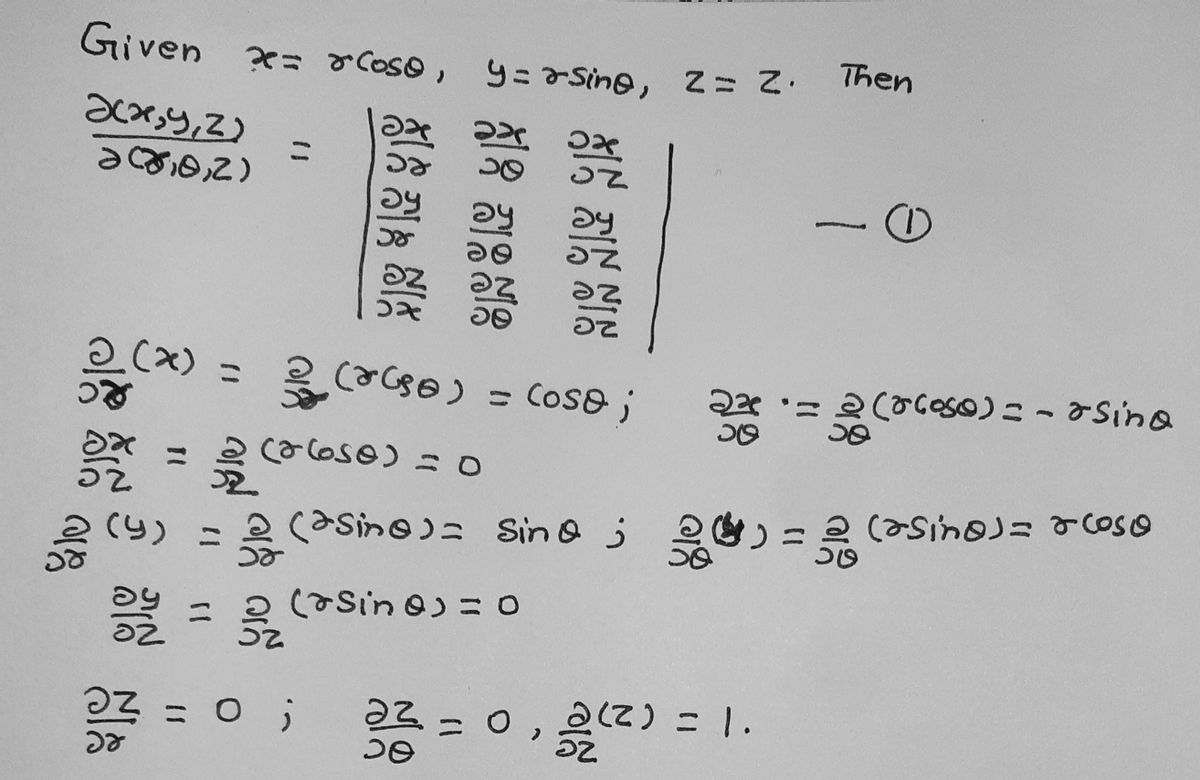 Given x = r cosθ, y = r sinθ, z = z. Then
∂(x,y,z)/∂(r,θ,z) = | ∂x/∂r ∂x/∂θ ∂x/∂z
∂y/∂r ∂y/∂θ ∂y/∂z
∂z/∂x ∂z/∂θ ∂z/∂z | — ①
∂/∂r (x) = ∂/∂r (r cosθ) = cosθ ; ∂x/∂θ = ∂/∂θ (r cosθ) = - r sinθ
∂x/∂z = ∂/∂z (r cosθ) = 0
∂/∂r (y) = ∂/∂r (r sinθ) = sinθ ; ∂/∂θ (y) = ∂/∂θ (r sinθ) = r cosθ
∂y/∂z = ∂/∂z (r sinθ) = 0
∂z/∂r = 0 ; ∂z/∂θ = 0 , ∂/∂z (z) = 1.